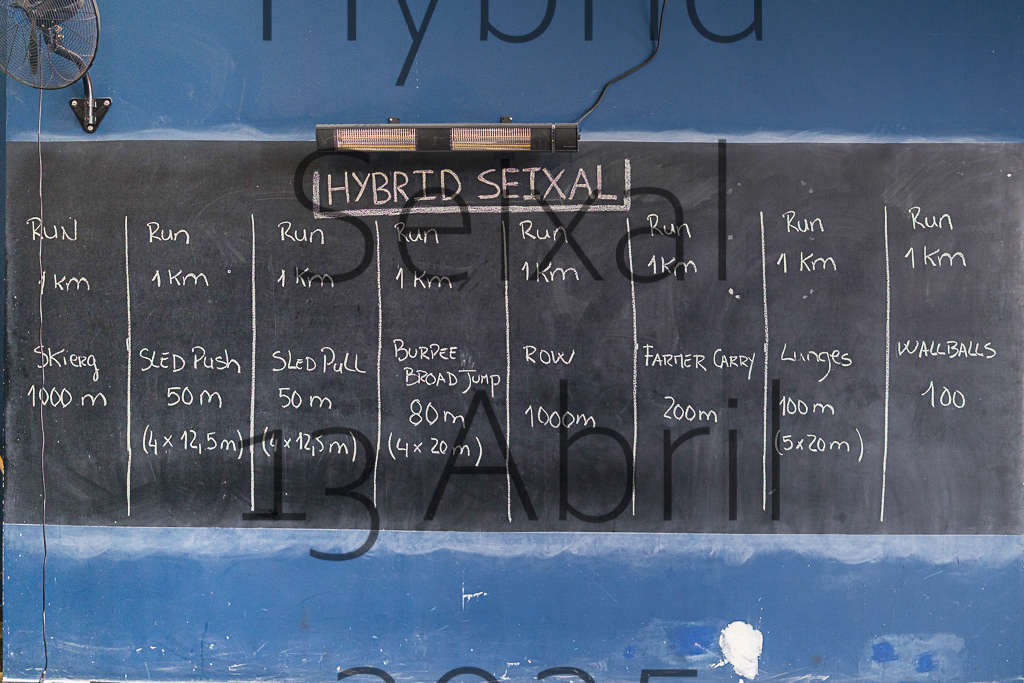 Hybrid
Seixal
13 Abril
2025
HYBRID SEIXAL
RUN
1 Km
SKierg
1000 m
Run
1 Km
SLED Push
50 m
(4 x 12,5 m)
Run
1 Km
SLED Pull
50 m
(4 x 12,5 m)
Run
1 Km
BURPEE
BROAD Jump
80 m
(4 x 20 m)
Run
1 Km
ROW
1000m
Run
1 Km
FARMER CARRY
200m
Run
1 Km
Lunges
100 m
(5 x 20 m)
Run
1 Km
WALLBALLS
100